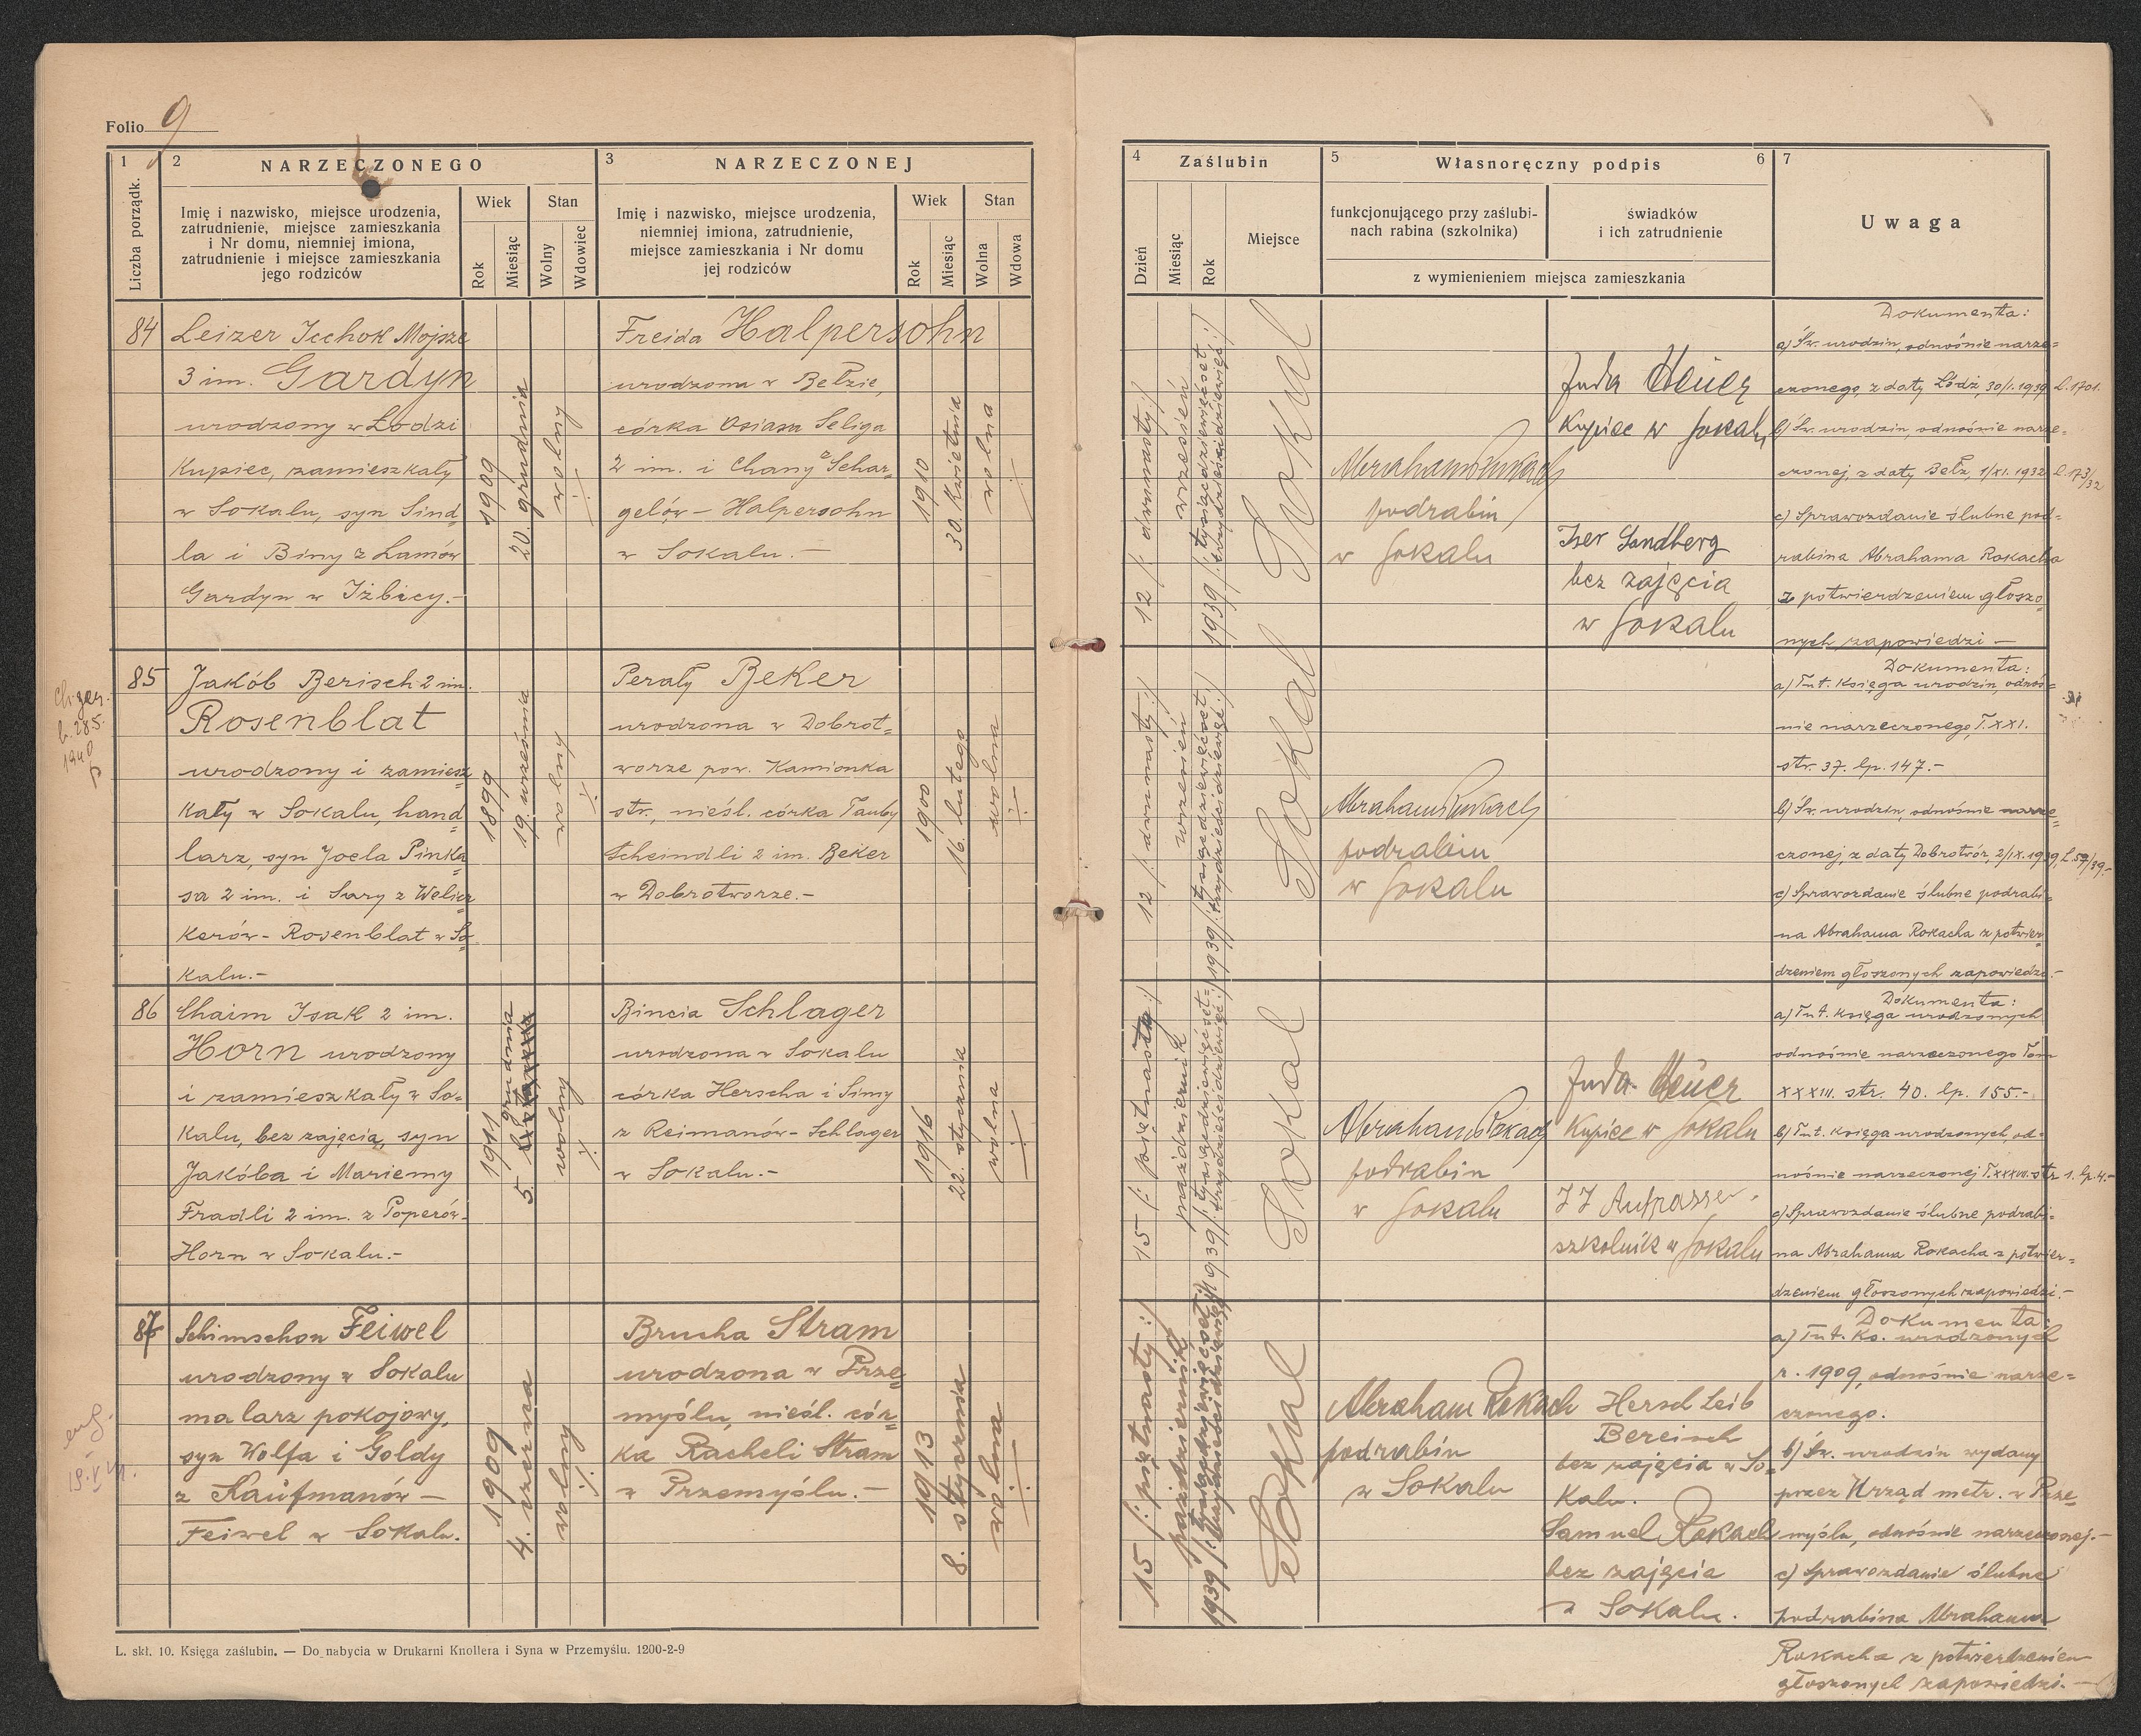 Folio 9
1
2
NARZECZONEGO
3
NARZECZONEJ
Liczba porządk.
Imię i nazwisko, miejsce urodzenia,
zatrudnienie, miejsce zamieszkania
i Nr domu, niemniej imiona,
zatrudnienie i miejsce zamieszkania
jego rodziców
Wiek
Rok
Miesiąc
Stan
Wolny
Wdowiec
Imię i nazwisko, miejsce urodzenia,
niemniej imiona, zatrudnienie,
miejsce zamieszkania i Nr domu
jej rodziców
Wiek
Rok
Miesiąc
Stan
Wolna
Wdowa
84
Leizer Icchok Mojsze
3 im. Gardyn
urodzony w Łodzi
Kupiec, zamieszkały
w Sokalu, syn Sind=
la i Biny z Lamów
Gardyn w Iżbicy.-
1909
20. grudnia
wolny
Freida Halpersohn
urodzona w Bełzie,
córka Osiasa Seliga
2 im. i Chany Schar=
gelów - Halpersohn
w Sokalu.-
1910
30. kwietnia
wolna
85
Jakób Berisch 2 im.
Rosenblat
urodzony i zamiesz
kały w Sokalu, hand=
larz, syn Joela Pinka
sa 2 im. i Sary z Welicz
kerów - Rosenblat w So=
kalu.-
1899
19. września
wolny
Perały Beker
urodzona w Dobrot=
worze pow. Kamionka
str., nieśl. córka Tauby
Scheindli 2 im. Beker
w Dobrotworze.-
1900
16. lutego
wolna
86
Chaim Isak 2 im.
Horn urodzony
i zamieszkały w So=
kalu, bez zajęcia, syn
Jakóba i Mariemy
Fradli 2 im. z Poperów-
Horn w Sokalu.-
1911
5. grudnia
wolny
Bincia Schlager
urodzona w Sokalu
córka Herscha i Simy
z Reimanów - Schlager
w Sokalu.-
1916
22. stycznia
wolna
87
Schimschon Feiwel
urodzony w Sokalu
malarz pokojowy,
syn Wolfa i Goldy
z Kaufmanów -
Feiwel w Sokalu.
1909
4. czerwca
wolny
Brucha Stram
urodzona w Prze=
myślu, nieśl. cór=
ka Racheli Stram
w Przemyślu.-
1913
8. stycznia
wolna
L. skł. 10. Księga zaślubin. — Do nabycia w Drukarni Knollera i Syna w Przemyślu. 1200-2-9
4
Zaślubin
5
Własnoręczny podpis
6
7
Dzień
Miesiąc
Rok
Miejsce
funkcjonującego przy zaślubi-
nach rabina (szkolnika)
świadków
i ich zatrudnienie
z wymienieniem miejsca zamieszkania
Uwaga
12 /: dwunasty :/
wrzesień
1939 /: tysiącdziewięćset
trzydzieścidziewięć :/
Sokal
Abraham Rokach
podrabin
w Sokalu
Juda Heuer
Kupiec w Sokalu
Iser Sandberg
bez zajęcia
w Sokalu
Dokumenta:
a) Św. urodzin, odnośnie narze=
czonego, z daty Łódź, 30/1.1939 L.1701.
b) Św. urodzin, odnośnie narze=
czonej, z daty Bełz, 1/XI. 1932 L.173/32
c) Sprawozdanie ślubne pod=
rabina Abrahama Rokacha
z potwierdzeniem głoszo=
nych zapowiedzi -
12 /: dwunasty :/
wrzesień
1939 /: tysiącdziewięćset
trzydzieścidziewięć :/
Sokal
Abraham Rokach
podrabin
w Sokalu
Dokumenta:
a) Tut. Księga urodzin, odnoś=
nie narzeczonego, T. XXI.
str. 37. lp. 147.-
b) Św. urodzin, odnośnie narze=
czonej, z daty Dobrotwór, 2/IX.1939, L.59/39.-
c) Sprawozdanie ślubne podrabi=
na Abrahama Rokacha z potwier=
dzeniem głoszonych zapowiedzi.-
15 /: piętnasty :/
październik
1939 /: tysiącdziewięćset-
trzydzieścidziewięć :/
Sokal
Abraham Rokach
podrabin
w Sokalu
Juda Heuer
Kupiec w Sokalu
szkolnik w Sokalu
Dokumenta:
a) Tut. Księga urodzonych
odnośnie narzeczonego Tom
XXXIII. str. 40. lp. 155.-
b) Tut. Księga urodzonych, od=
nośnie narzeczonej str 1. lp. 4.-
c) Sprawozdanie ślubne podrabi=
na Abrahama Rokacha z potwier=
dzeniem głoszonych zapowiedzi.-
15 /: piętnasty :/
październik
1939 /: tysiącdziewięćset
trzydzieścidziewięć :/
Sokal
Abraham Rokach
podrabin
w Sokalu
Hersch Leib
Bereisch
bez zajęcia w So=
kalu.
Samuel Rokach
bez zajęcia
w Sokalu.
Dokumenta:
a) Tut. Ks. urodzonych
r. 1909, odnośnie narze=
czonego.
b) Św. urodzin wydany
przez Urząd metr. w Prze=
myślu, odnośnie narzeczonej.-
c) Sprawozdanie ślubne
podrabina Abrahama
Rokacha z potwierdzeniem
głoszonych zapowiedzi.-